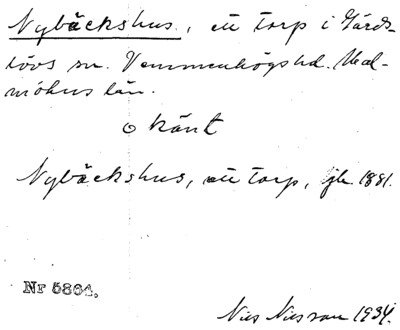 Nybäckshus, ett torp i Gärds-
lövs sn. Vemmenhögs hd. Mal-
möhus län.
okänt
Nybäckshus, ett torp, jb 1881.
Nr 5864.
Nils Nilsson 1934.